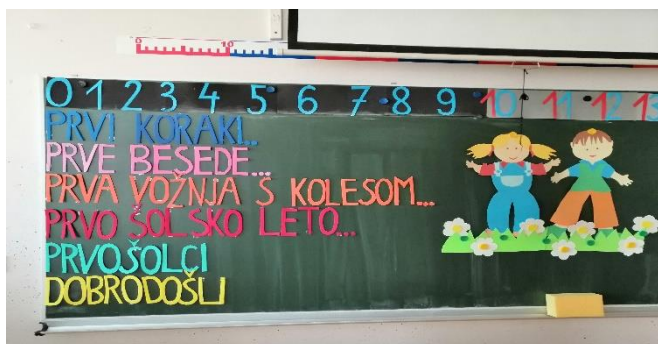 0 10
0 1 2 3 4 5 6 7 8 9 10 11 12 13
PRVI KORAKI...
PRVE BESEDE...
PRVA VOŽNJA S KOLESOM...
PRVO ŠOLSKO LETO...
PRVOŠOLCI
DOBRODOŠLI